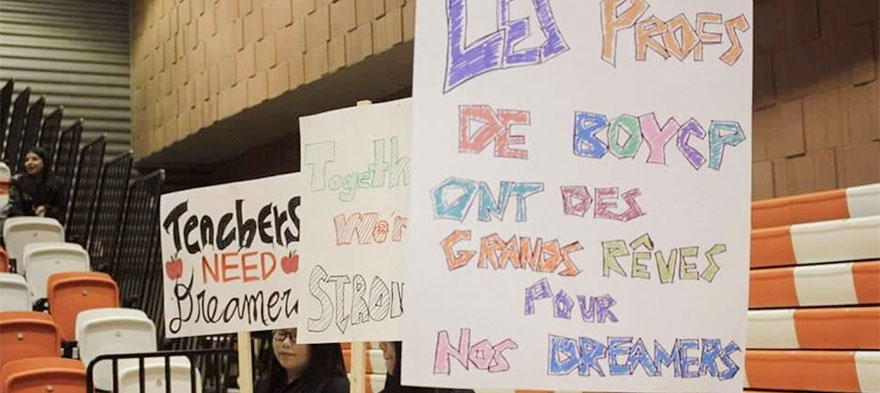 Teachers
NEED
Dreamers
Together
We're
STRONG
LES PROFS
DE BOYCP
ONT DES
GRANDS RÊVES
POUR
NOS DREAMERS